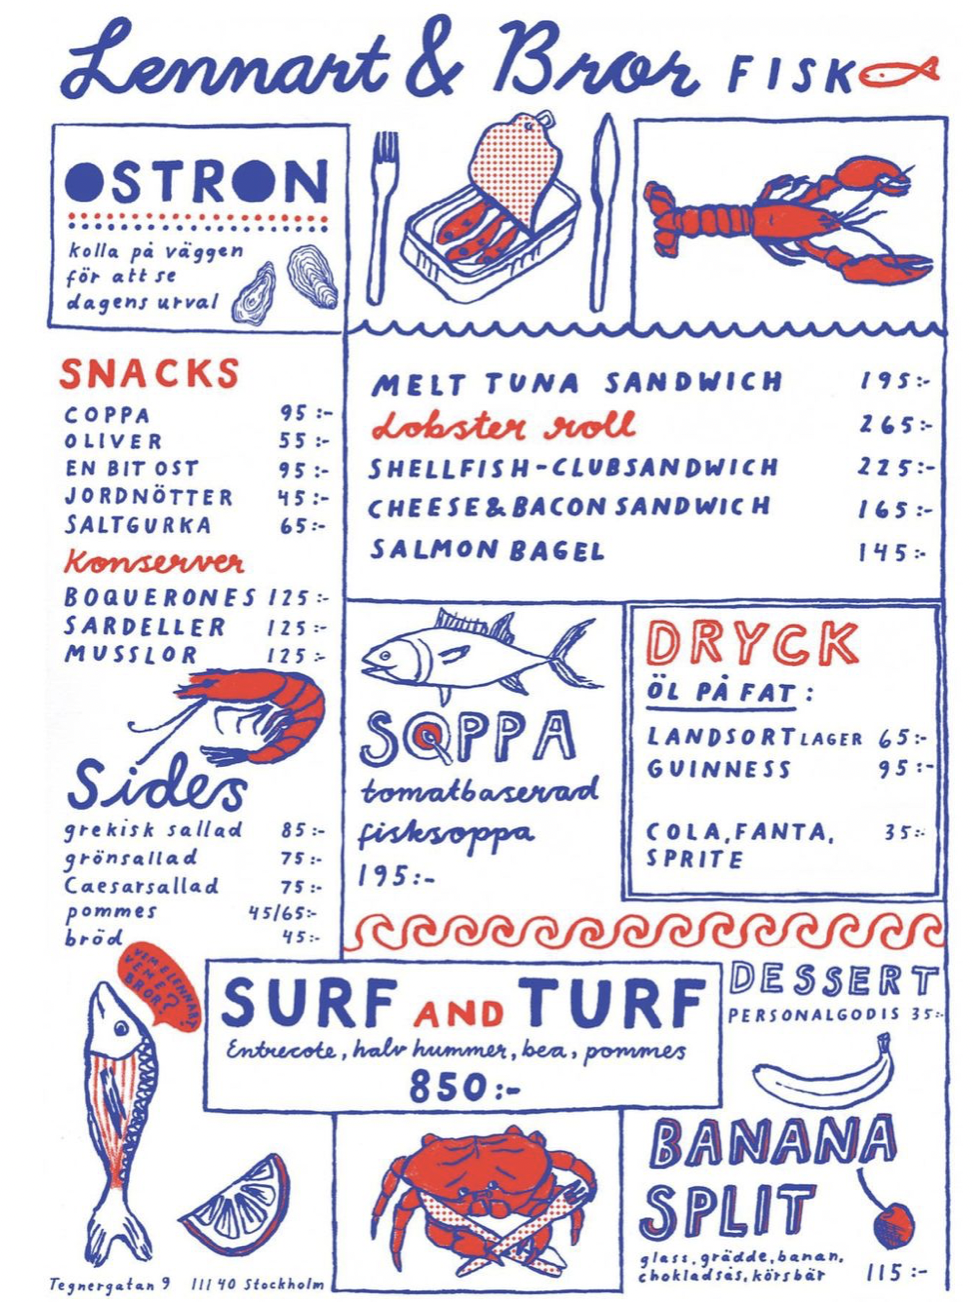 Lennart & Bror FISK
OSTRON
kolla på väggen
för att se
dagens urval
SNACKS
COPPA 95:-
OLIVER 55:-
EN BIT OST 95:-
JORDNÖTTER 45:-
SALTGURKA 65:-
Konserver
BOQUERONES 125:-
SARDELLER 125:-
MUSSLOR 125:-
Sides
grekisk sallad 85:-
grönsallad 75:-
Caesarsallad 75:-
pommes 45/65:-
bröd 45:-
MELT TUNA SANDWICH 195:-
Lobster roll 265:-
SHELLFISH-CLUBSANDWICH 225:-
CHEESE&BACON SANDWICH 165:-
SALMON BAGEL 145:-
SOPPA
tomatbaserad
fisksoppa
195:-
DRYCK
ÖL PÅ FAT:
LANDSORT LAGER 65:-
GUINNESS 95:-
COLA, FANTA, 35:-
SPRITE
VEM E LENNART?
VEM E
BROR?
SURF AND TURF
Entrecote, halv hummer, bea, pommes
850:-
DESSERT
PERSONALGODIS 35:-
BANANA
SPLIT
glass, grädde, banan,
chokladsås, körsbär 115:-
Tegnergatan 9 111 40 Stockholm